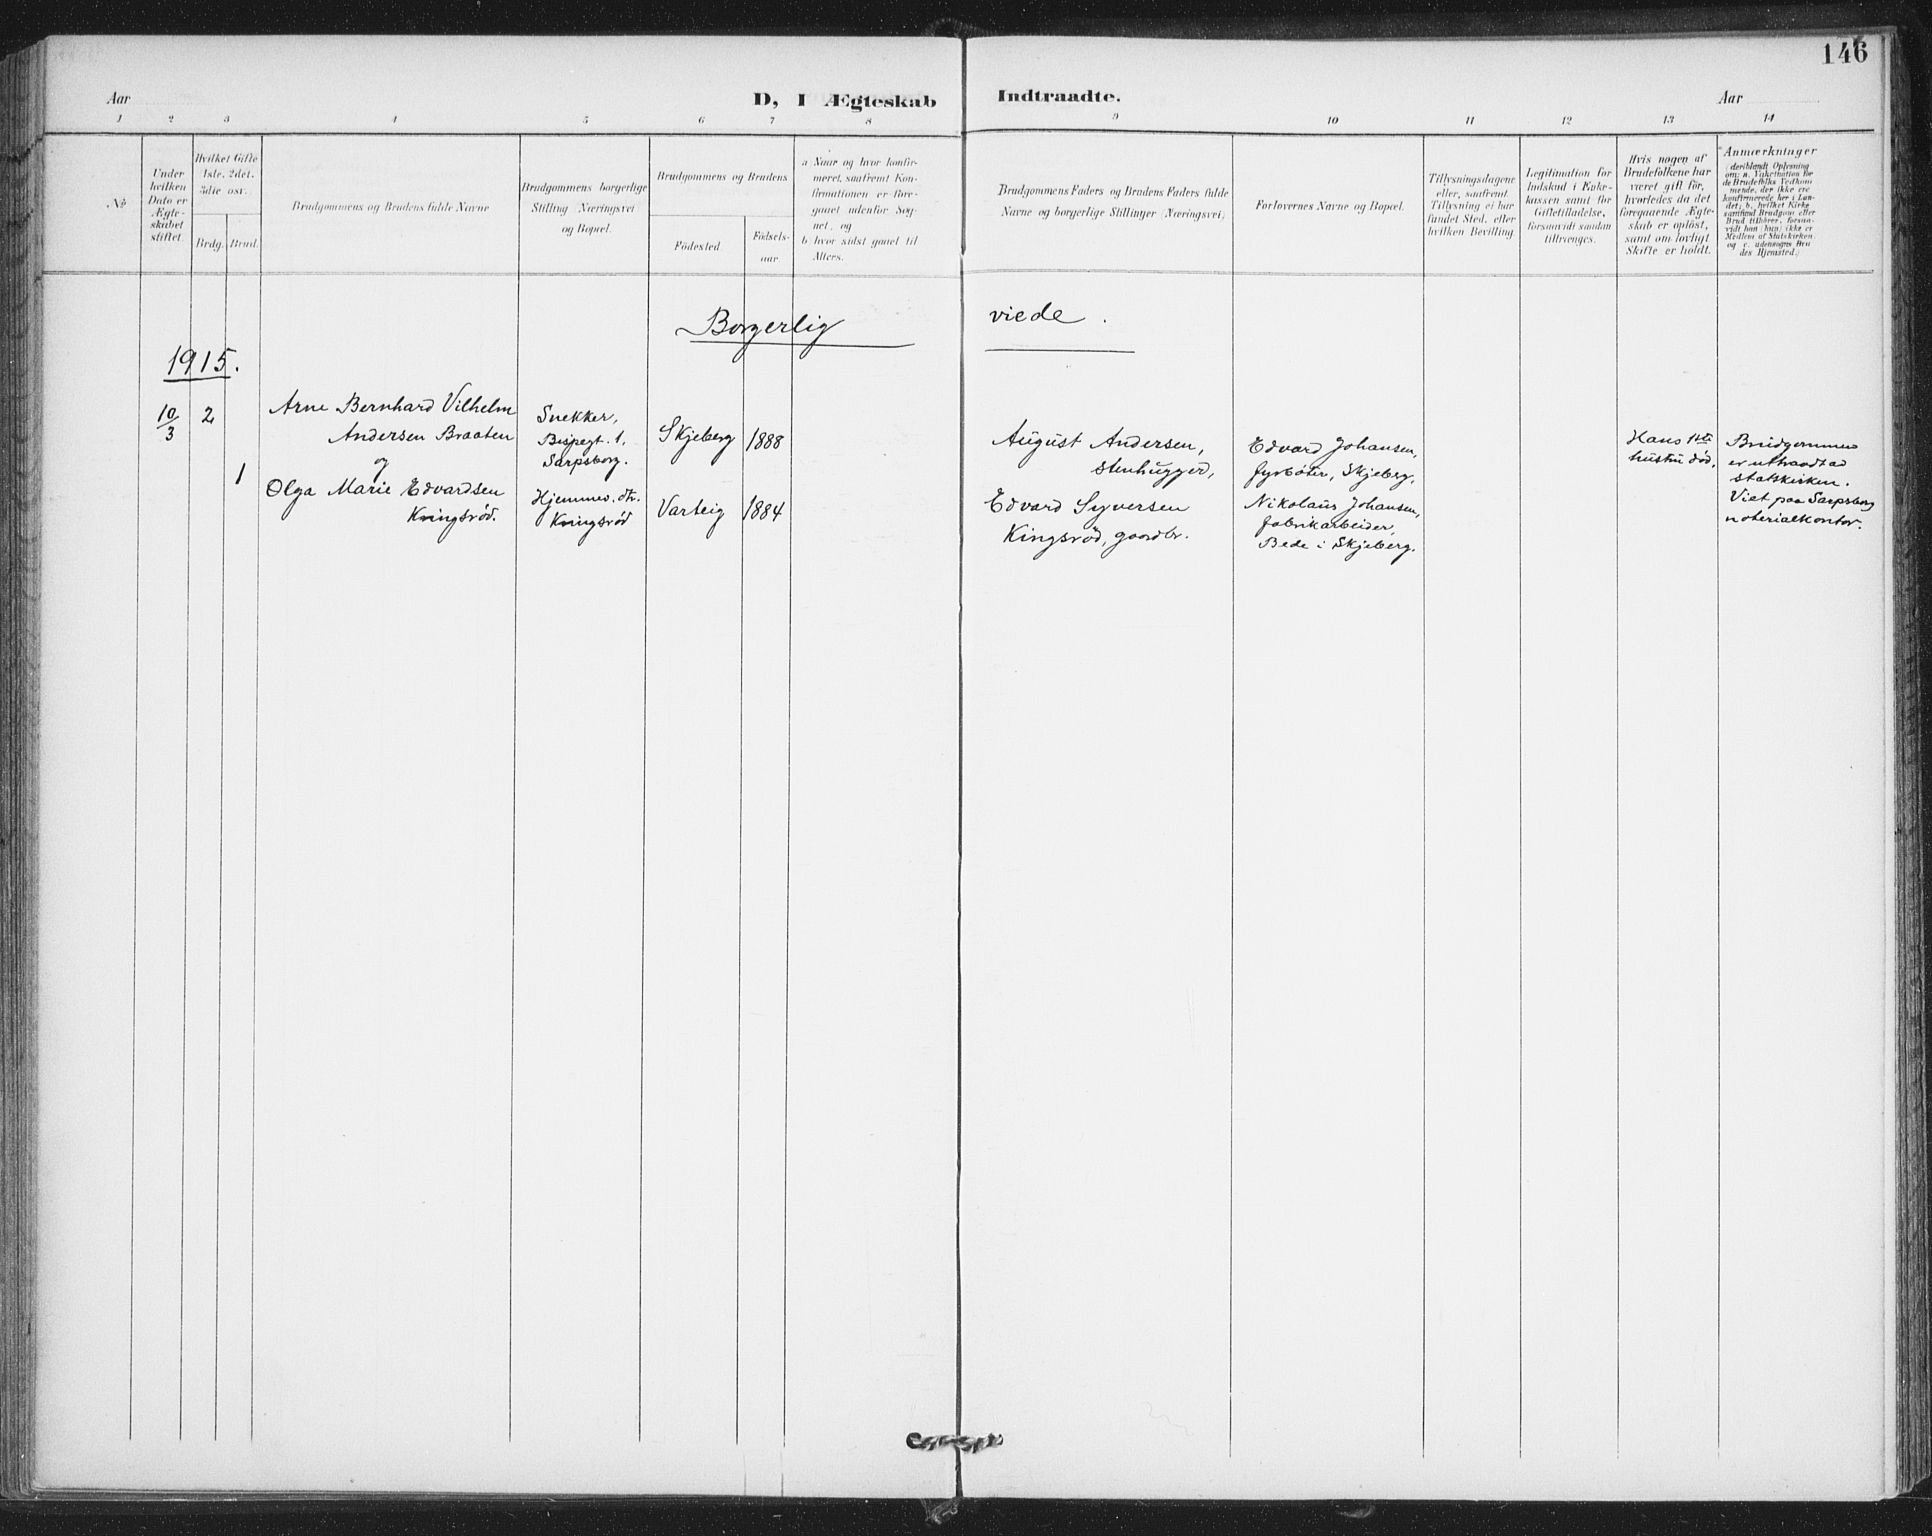 146
Aar
D, I Ægteskab Indtraadte.
Aar
1 2 3 4 5 6 7 8 9 10 11 12 13 14
No
Under
hvilken
Dato er
Ægte-
skabet
stiftet
Hvilket Gifte
1ste, 2det,
3die osv.
Brdg. Brud.
Brudgommens og Brudens fulde Navne
Brudgommens borgerlige
Stilling (Næringsvei)
og Bopæl.
Brudgommens og Brudens
Födested.
Födsels-
aar.
a Naar og hvor konfir-
meret, saafremt Kon-
firmationen er fore-
gaaet udenfor Sog-
net, og
b hvor sidst gaaet til
Alters.
Brudgommens Faders og Brudens Faders fulde
Navne og borgerlige Stillinger (Næringsvei)
Forlovernes Navne og Bopæl.
Tillysningsdagene
eller, saafremt
Tillysning ei har
fundet Sted, efter
hvilken Bevilling.
Legitimation for
Indskud i Enke-
kassen samt for
Giftetilladelse,
forsaavidt saadan
tiltrænges.
Hvis nogen af
Brudefolkene har
været gift för,
hvorledes da det
foregaaende Ægte-
skab er oplöst,
samt om lovligt
Skifte er holdt.
Anmærkninger
(deriblandt Oplysning
om: a. Vakcination for
de Brudefolks Vedkom-
mende, der ikke ere
konfirmerede her i Lan-
det; b. hvilket Kirke-
samfund Brudgom eller
Brud tilhörer, forsaa-
vidt han (hun) ikke er
Medlem af Statskirken
og c. udensogns Bru-
des Hjemsted.)
Borgerlig viede.
1915.
10/3 2
Arne Bernhard Vilhelm
Andersen Braaten
og
1
Olga Marie Edvardsen
Kringsrød.
Snekker,
Bispegt. 1,
Sarpsborg.
Hjemmev. dtr.
Kringsrød
Skjeberg 1888
Varteig 1884
August Andersen,
stenhugger,
Edvard Syversen
Kingsröd, gaardbr.
Edvard Johansen,
fyrbøter, Skjeberg,
Nikolaus Johansen,
fabrikarbeider,
Bede i Skjeberg.
Hans 1ste
hustru död.
Brudgommen
er uttraadt ad
statskirken.
Viet paa Sarpsborg
noterialkontor.